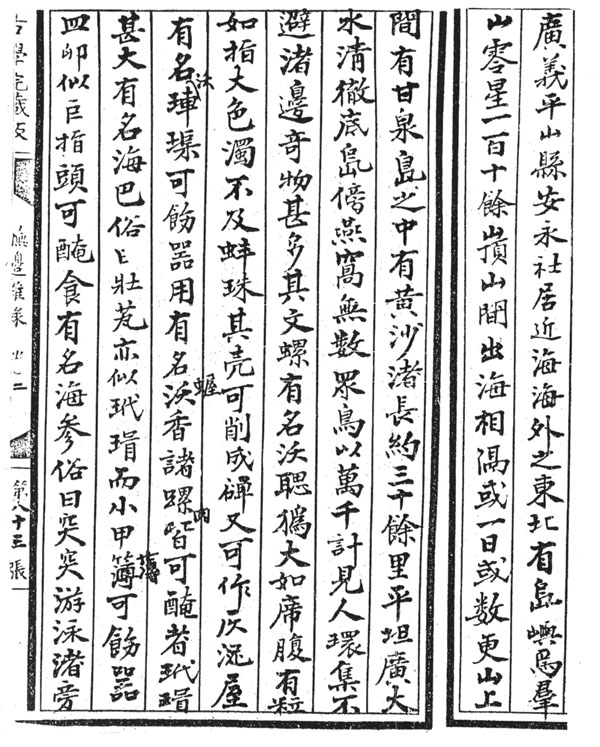 廣義平山縣安永社居近海海外之東北有島嶼焉羣
山零星一百十餘嶺山間出海相隔或一日或数更山上
間有甘泉島之中有黄沙渚長約三十餘里平坦廣大
水清徹底島傍燕窩無數眾鳥以萬千計見人環集不
避渚邊奇物甚多其文螺有名沃聦大如席腹有粒
如指大色濁不及蚌珠其壳可削成碑又可作灰泥屋
有名沃璖可飭器用有名沃香諸螺皆可醃肉者玳瑁
甚大有名海巴俗曰壯芃亦似玳瑁而小甲簿薄可飭器
皿卵似巨指頭可醃食有名海參俗曰突突游泳渚旁
古學院藏板
撫邊雜彔
之二
第八十三張